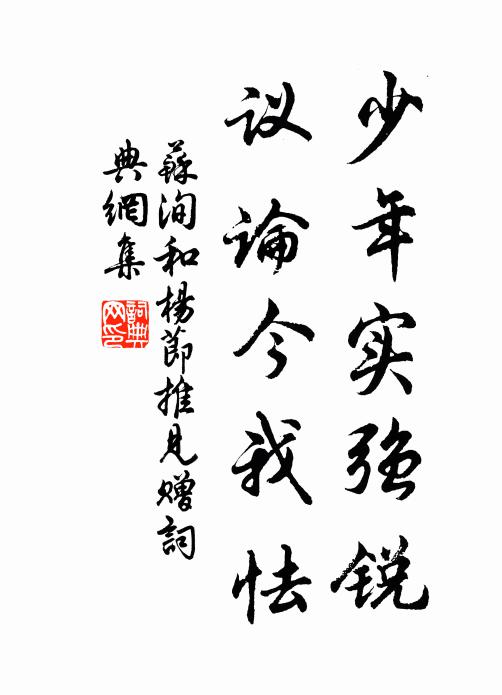 少年实强锐
议论今我怯
蘇洵和楊節推見贈詞
典網集
詞典
网印